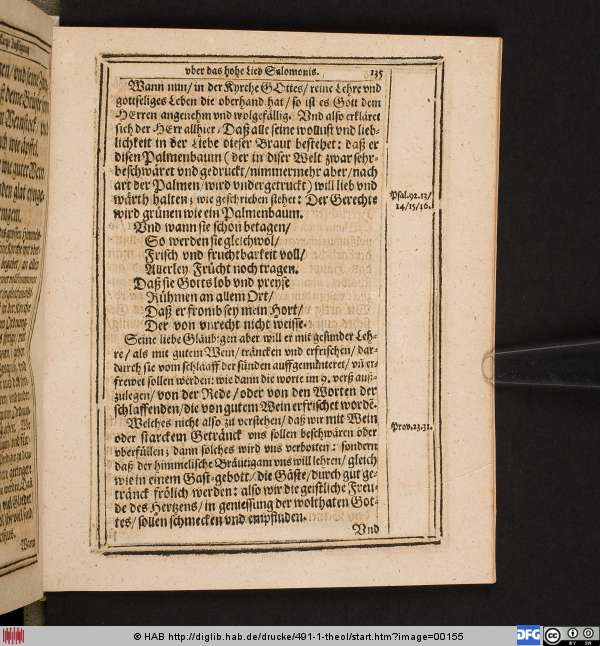 vber das hohe Lied Salomonis. 135
Wann nun/ in der Kyrche GOttes/ reine Lehre vnd
gottseliges Leben die oberhand hat/ so ist es Gott dem
HErren angenehm vnd wolgefällig. Vnd also erkläret
sich der HErr allhier/ Daß alle seine wollust vnd lieb-
lichkeit in der Liebe dieser Braut bestehet: daß er
disen Palmenbaum (der in diser Welt zwar sehr
beschwäret vnd gedruckt/ nimmermehr aber/ nach
art der Palmen/ wird vndergetruckt) will lieb vnd
wärth halten; wie geschrieben stehet: Der Gerechte
wird grünen wie ein Palmenbaum.
Psal. 92. 13/
14/15/16.
Vnd wann sie schon betagen/
So werden sie gleichwol/
Frisch vnd fruchtbarkeit voll/
Allerley Frücht noch tragen.
Daß sie Gotts lob vnd preyse
Rühmen an allem Ort/
Daß er fromb sey mein Hort/
Der von vnrecht nicht weisse.
Seine liebe Gläubigen aber will er mit gesunder Leh-
re/ als mit gutem Wein/ träncken vnd erfrischen/ dar-
durch sie vom schlaaff der sünden auffgemünteret/ vñ er-
frewet sollen werden: wie dann die worte im 9. verß auß-
zulegen/ von der Rede/ oder von den Worten der
schlaffenden/ die von gutem Wein erfrischet wordē.
Welches nicht also zu verstehen/ daß wir mit Wein
oder starckem Getränck vns sollen beschwären oder
vberfüllen; dann solches wird vns verbotten: sondern
Prov. 23. 31.
daß der himmelische Bräutigam vns will lehren/ gleich
wie in einem Gast-gebott/ die Gäste/ durch gut ge-
tränck frölich werden: also wir die geistliche Freu-
de des Hertzens/ in geniessung der wolthaten Got-
tes/ sollen schmecken vnd empfinden.
Vnd
Wann
© HAB http://diglib.hab.de/drucke/491-1-theol/start.htm?image=00155
DFG
cc
BY SA